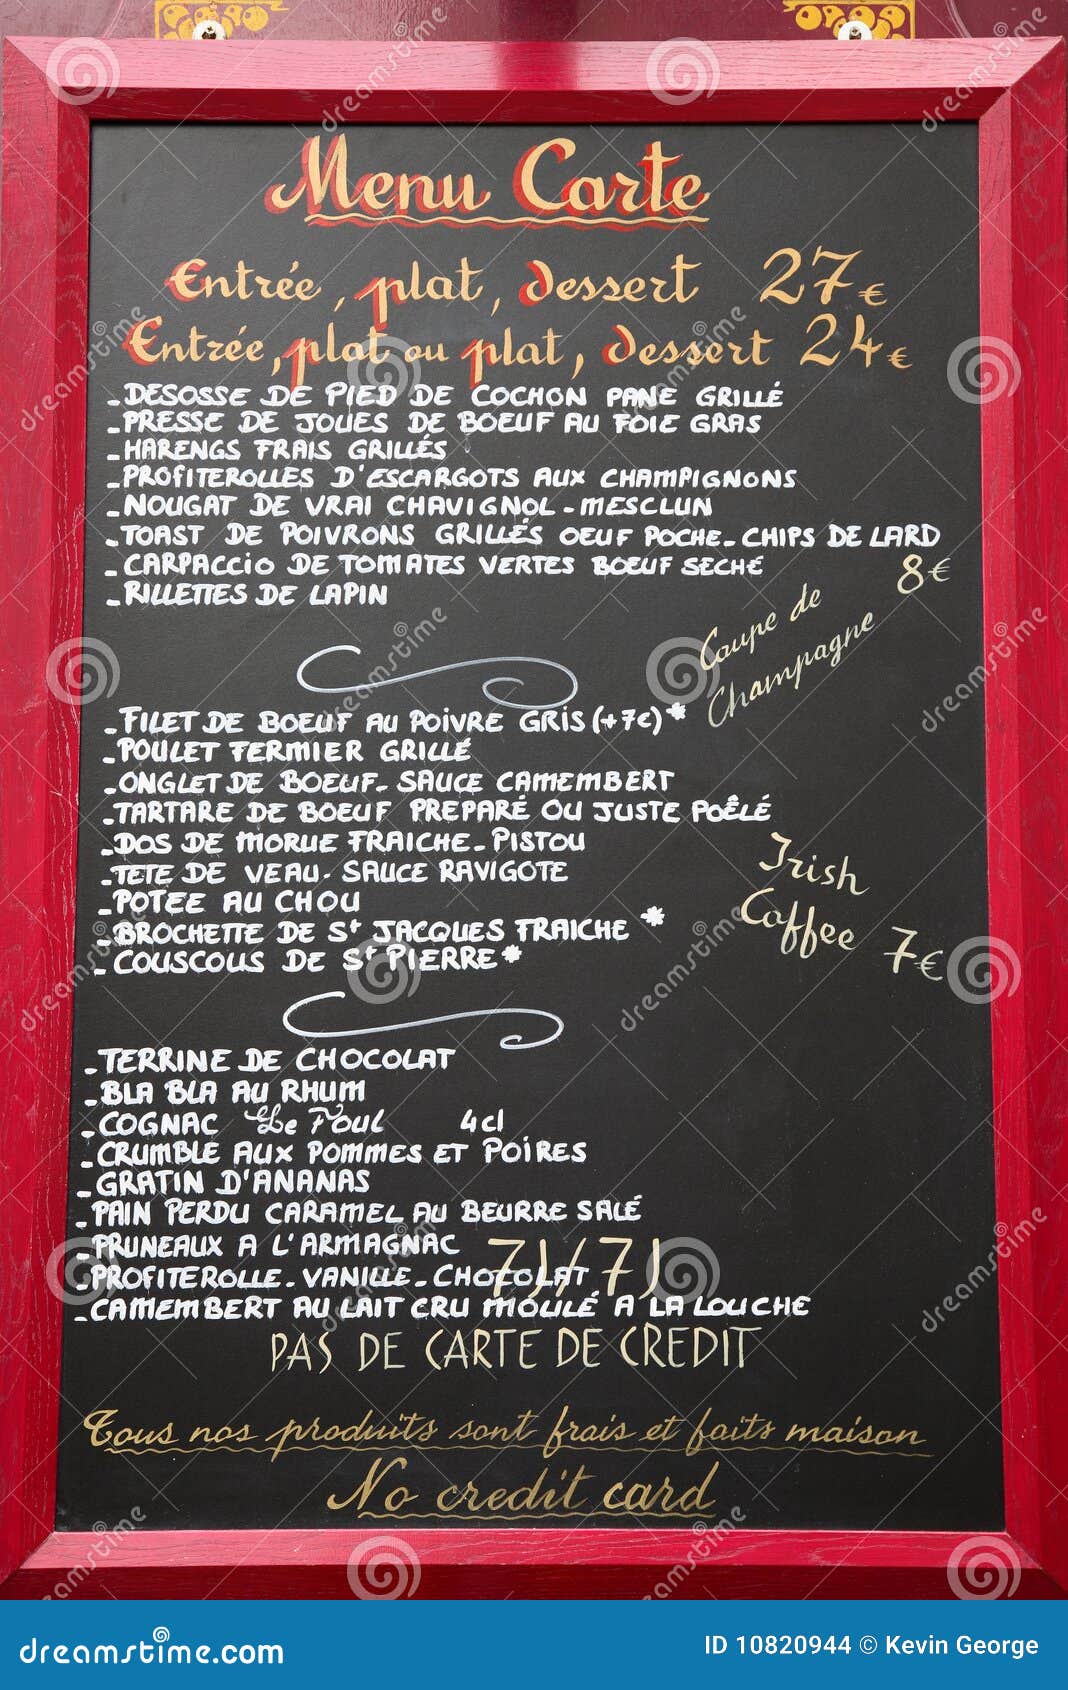 Menu Carte
Entrée, plat, dessert 27€
Entrée, plat ou plat, dessert 24€
-DESOSSE DE PIED DE COCHON PANE GRILLÉ
-PRESSE DE JOUES DE BOEUF AU FOIE GRAS
-HARENGS FRAIS GRILLÉS
-PROFITEROLLES D'ESCARGOTS AUX CHAMPIGNONS
-NOUGAT DE VRAI CHAVIGNOL-MESCLUN
-TOAST DE POIVRONS GRILLÉS OEUF POCHE-CHIPS DE LARD
-CARPACCIO DE TOMATES VERTES BOEUF SECHÉ
-RILLETTES DE LAPIN
Coupe de Champagne 8€
-FILET DE BOEUF AU POIVRE GRIS (+7€)*
-POULET FERMIER GRILLÉ
-ONGLET DE BOEUF-SAUCE CAMEMBERT
-TARTARE DE BOEUF PREPARÉ OU JUSTE POÊLÉ
-DOS DE MORUE FRAICHE-PISTOU
-TETE DE VEAU-SAUCE RAVIGOTE
-POTEE AU CHOU
-BROCHETTE DE St JACQUES FRAICHE *
-COUSCOUS DE St PIERRE*
Irish
Coffee 7€
-TERRINE DE CHOCOLAT
-BLA BLA AU RHUM
-COGNAC 4cl
-CRUMBLE AUX POMMES ET POIRES
-GRATIN D'ANANAS
-PAIN PERDU CARAMEL AU BEURRE SALÉ
-PRUNEAUX A L'ARMAGNAC
7J/7J
-PROFITEROLLE-VANILLE-CHOCOLAT
-CAMEMBERT AU LAIT CRU MOULÉ A LA LOUCHE
PAS DE CARTE DE CREDIT
Tous nos produits sont frais et faits maison
No credit card
dreamstime.com
ID 10820944 © Kevin George